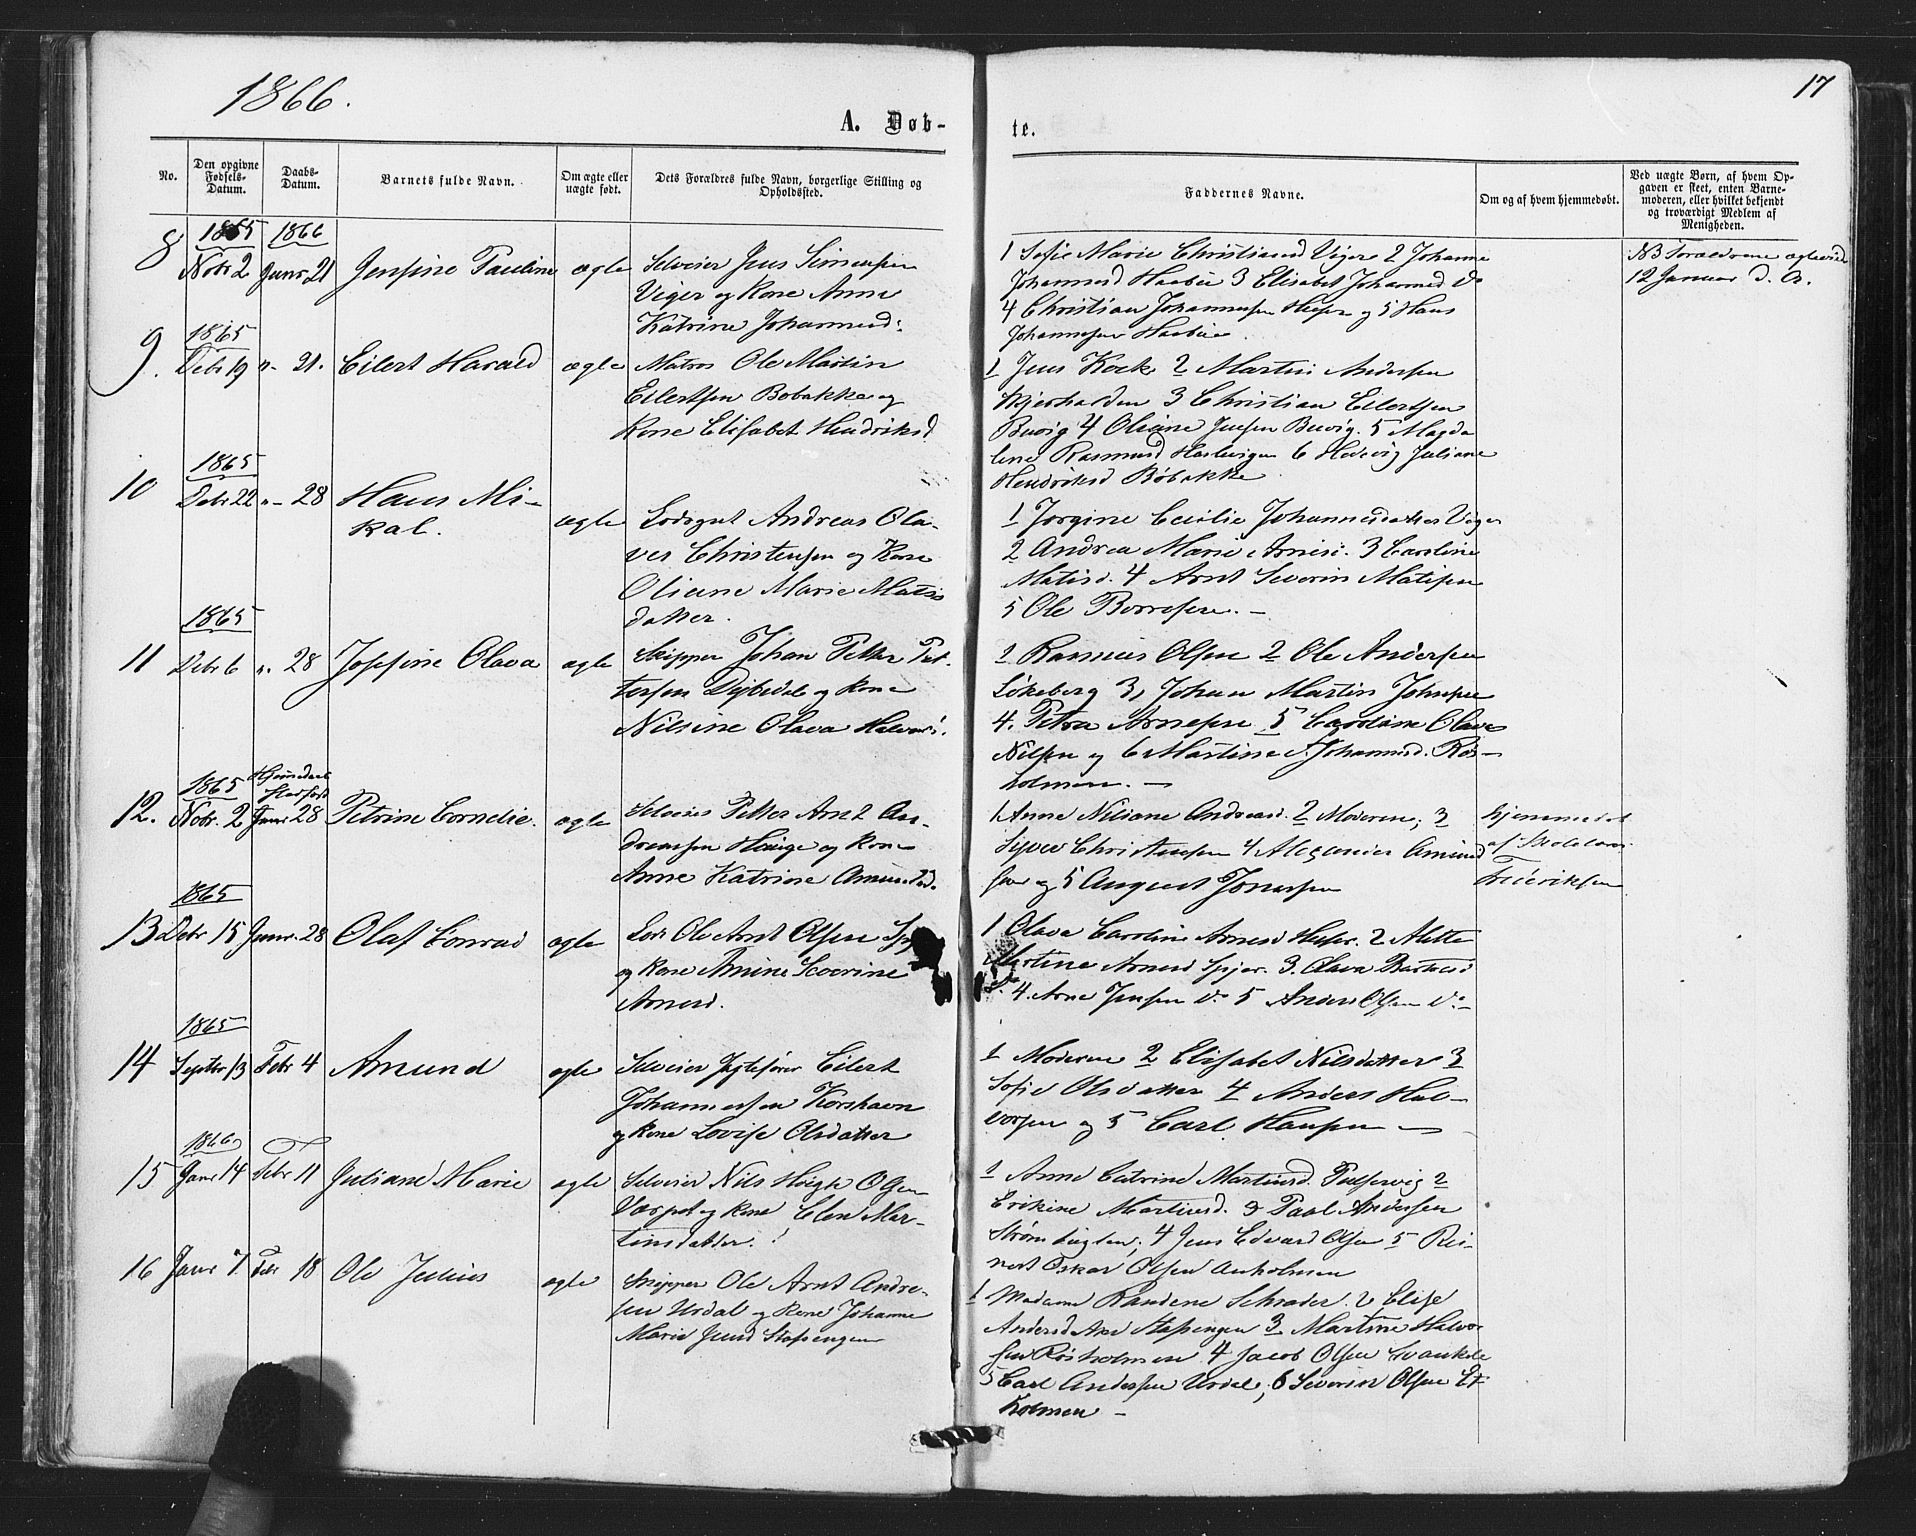 1866.
17
A. Døb-
te.
No.
Den opgivne
Fødsels-
Datum.
Daabs-
Datum.
Barnets fulde Navn.
Om ægte eller
uægte født.
Dets Forældres fulde Navn, borgerlige Stilling og
Opholdssted.
Faddernes Navne.
Om og af hvem hjemmedøbt.
Ved uægte Børn, af hvem Op-
gaven er skeet, enten Barne-
moderen, eller hvilket bekjendt
og troværdigt Medlem af
Menigheden.
1865 1866
8 Nobr 2 Janr 21 Jensine Pauline ægte Selveier Jens Simensen
Viger og Kone Anne
Katrine Johannesd:
1 Sofie Marie Christiansd Viger 2 Johanne
Johannesd 3 Elisabet Johannesd do
4 Christian Johannesen og 5 Hans
Johannesen
NB Forældrene
12 Januar d. A.
1865
9. Debr 19 "- 21. Eilert Harald ægte Matros Ole Martin
Eilertsen Bobakke og
Kone Elisabet Hendriksd
1 Jens Kock 2 Martin Andersen
Kjerhalden 3 Christian Eilertsen
Buvig 4 Oliane Jensen Buvig. 5 Magda
lene Rasmusd 6 Hedevig Juliane
Hendriksd Bøbakke
1865
10 Debr 22 "- 28 Hans Mi-
kal. ægte Lodsgut Andreas Ola-
ves Christensen og Kone
Oliane Marie Matis
datter.
1 Jorgine Cecilie Johannesdatter Viger
2 Andrea Marie 3 Caroline
Matisd. 4 Arnt Severin Matisen
5 Ole Borresen. -
1865
11 Debr 6 ". 28 Josefine Olava ægte Skipper Johan Petter Pet-
tersen og Kone
Nilsine Olava
1 Rasmus Olsen 2 Ole Andersen
Løkeberg 3, Johan Martin Johnsen
4. Petra Arnesen 5 Caroline Olava
Nilsen og 6 Martine Johannesd. Røs-
holmen. -
1865 Hjemmedøbt
12. Nobr. 2 Janr 28 Petrine Cornelie. ægte Selveier Petter Arnt An-
dreassen og Kone
Anne Katrine
1 Anne Nilsine Andreasd. 2 Moderen; 3
Syver Christensen 4 Alexander Amund
sen og 5 August Jonassen
hjemmedøbt
af Skolelærer
Frideriksen
1865
13 Debr 15 Janr. 28 Olaf Conrad ægte Lods Ole Arnt Olsen
og Kone Amine Severine
Arnesd.
1 Olava Caroline Arnesd 2 Alette
Martine Arnesd Spjer. 3. Olava
4. Arne Jensen do 5 Anders Olsen do -
1865
14 Septbr 13 Febr 4 Amund ægte Selveier Eilert
Johannessen Korshavn
og Kone Lovise Olsdatter
1 Moderen 2 Elisabet Nilsdatter 3
Sofie Olsdatter 4 Anders Hal-
vorsen og 5 Carl Hansen -
1866
15 Janr 14 Febr 11 Juliane Marie ægte Selveier Nils Olsen
og Kone Elen Mar-
tinsdatter.
1 Anne Catrine Martinsd. 2
Erikine Martinsd. 3 Paal Andersen
4 Jens Edvard Olsen 5 Rei-
nert Oskar Olsen
16 Janr 7. Febr 18 Ole Julius ægte Skipper Ole Arnt Andre-
sen Urdal og Kone Johanne
Marie Stafsengen
1 Madame Randene Schrader. 2 Elise
Stafsengen 3 Martine Halvor
sen Røsholmen 4 Jacob Olsen
5 Carl Andersen Urdal, 6 Severin Olsen
Kolmen -